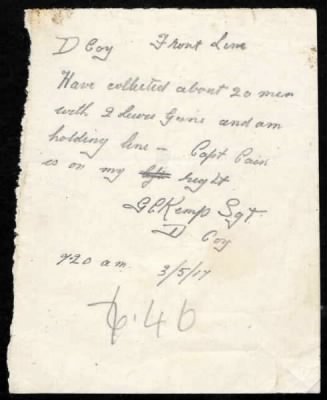 D Coy Front Line
Have collected about 20 men
with 2 Lewis Guns and am
holding line – Capt Cain
is on my left right
G C Kemp Sgt
D Coy
920 am. 3/5/17
6.46